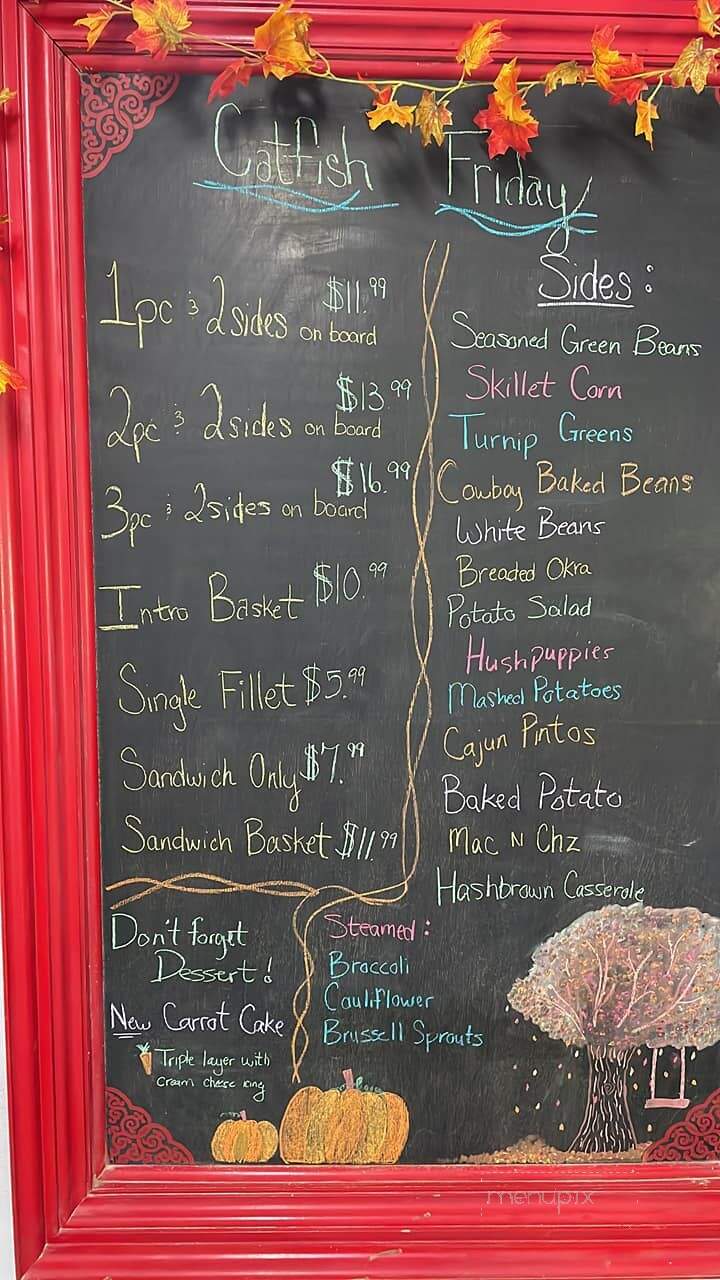 Catfish Friday
1pc & 2 sides on board $11.99
2pc & 2 sides on board $13.99
3pc & 2 sides on board $16.99
Intro Basket $10.99
Single Fillet $5.99
Sandwich Only $7.99
Sandwich Basket $11.99
Don't forget
Dessert!
New Carrot Cake
Triple layer with
cream chese icing
Sides:
Seasoned Green Beans
Skillet Corn
Turnip Greens
Cowboy Baked Beans
White Beans
Breaded Okra
Potato Salad
Hushpuppies
Mashed Potatoes
Cajun Pintos
Baked Potato
Mac N Chz
Hashbrown Casserole
Steamed:
Broccoli
Cauliflower
Brussell Sprouts
menupix